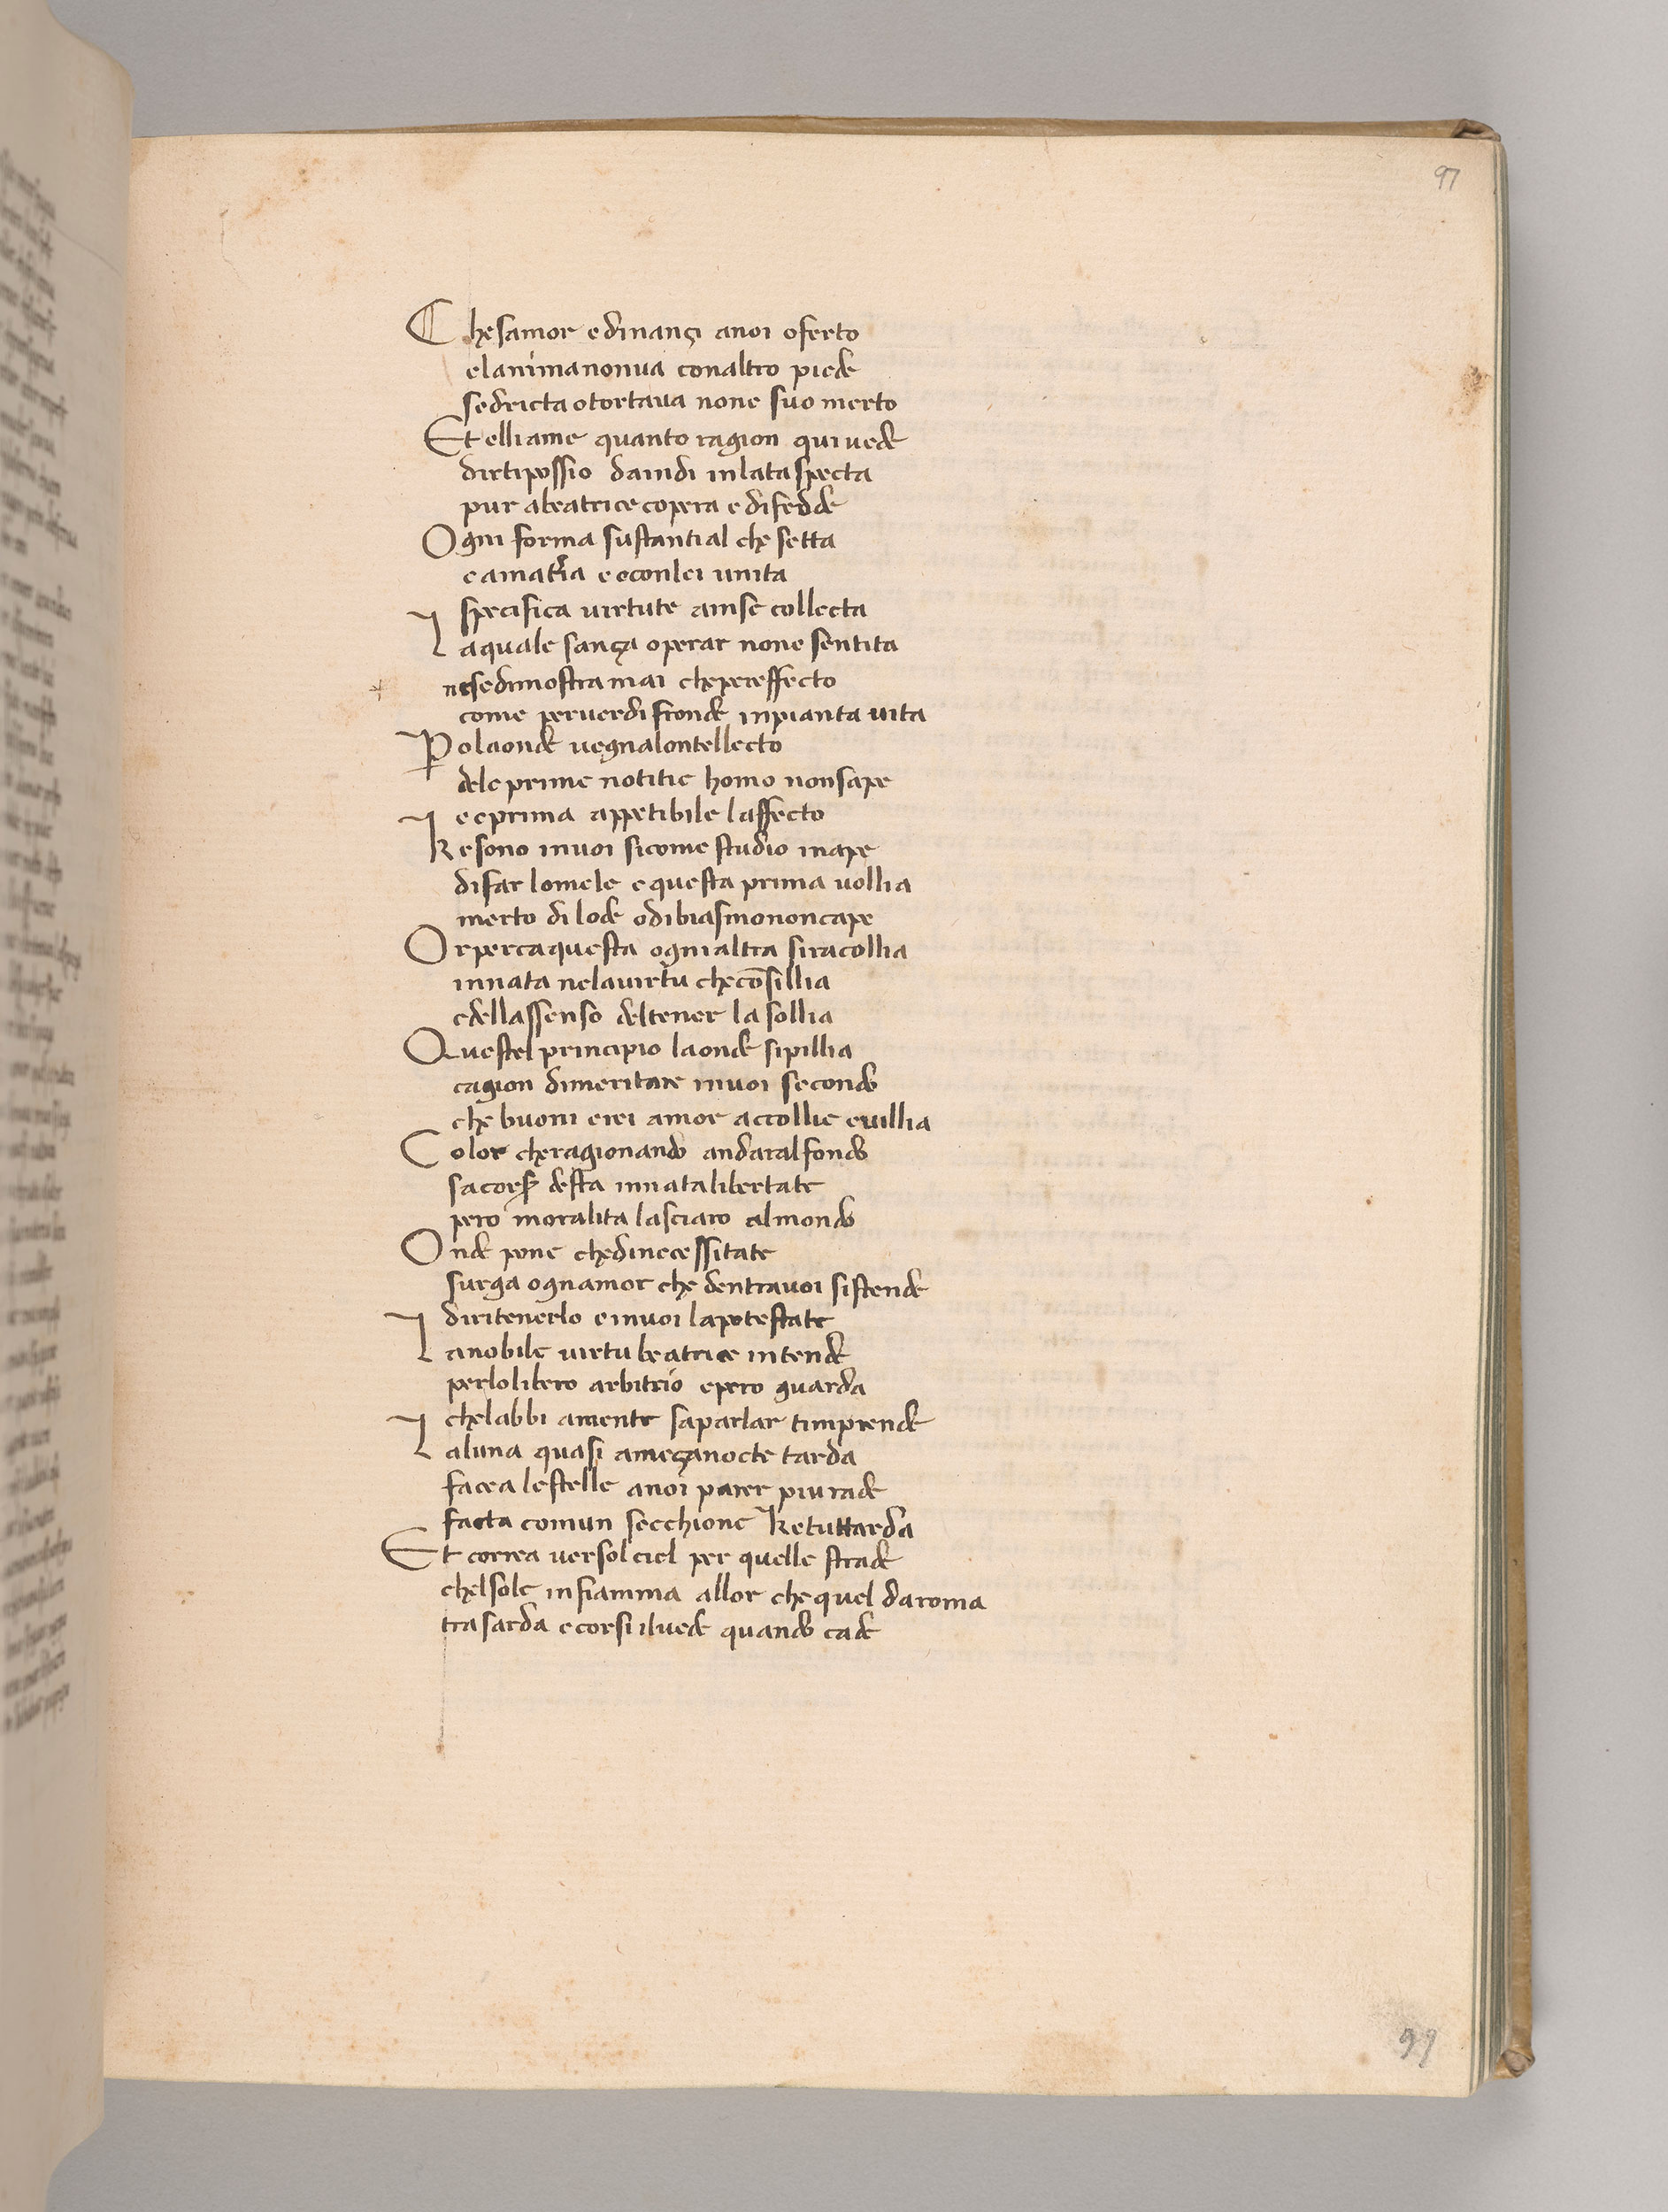 97
Che samor e dinançi anoi oferto
elanima nonva conaltro piede
sedricta o tortava none suo merto
Et elli ame quanto ragion qui vede
dirtipossio daindi inlataspecta
pur abeatrice copera e difedde
Ogni forma sustantial che setta
e amatria e econlei unita
specifica virtute ainse collecta
Laquale sança operar none sentita
nesedimostra mai chepereffecto
come perverdi fronde inpianta vita
Polaonde vegnalontellecto
dele prime notitie homo nonsape
e eprima appetibile laffecto
Ke sono invoi sicome studio inape
di far lomele e questa prima vollia
merto di lode odibiasmo noncape
Orpercaquesta ogni altra siracollia
innata nelavirtu checōsillia
edellassenso deltener la sollia
Questel principio laonde sipillia
cagion dimeritare invoi secondo
che buoni erei amor accollie evillia
Color cheragionando andaral fondo
sacorser desta innatalibertate
pero moralita lasciaro almondo
Onde pone chedinecessitate
surga ognamor che dentravoi sistende
diritenerlo e invoi lapotestate
Lanobile virtu beatrice intende
perlolibero arbitrio epero guarda
chelabbi amente saparlar timprende
Laluna quasi ameçanocte tarda
facea lestelle anoi parer piurade
facta comun secchione Ketuttarda
Et correa versolciel per quelle strade
chelsole infiamma allor che quel daroma
tra sarda e corsi ilvede quando cade
99